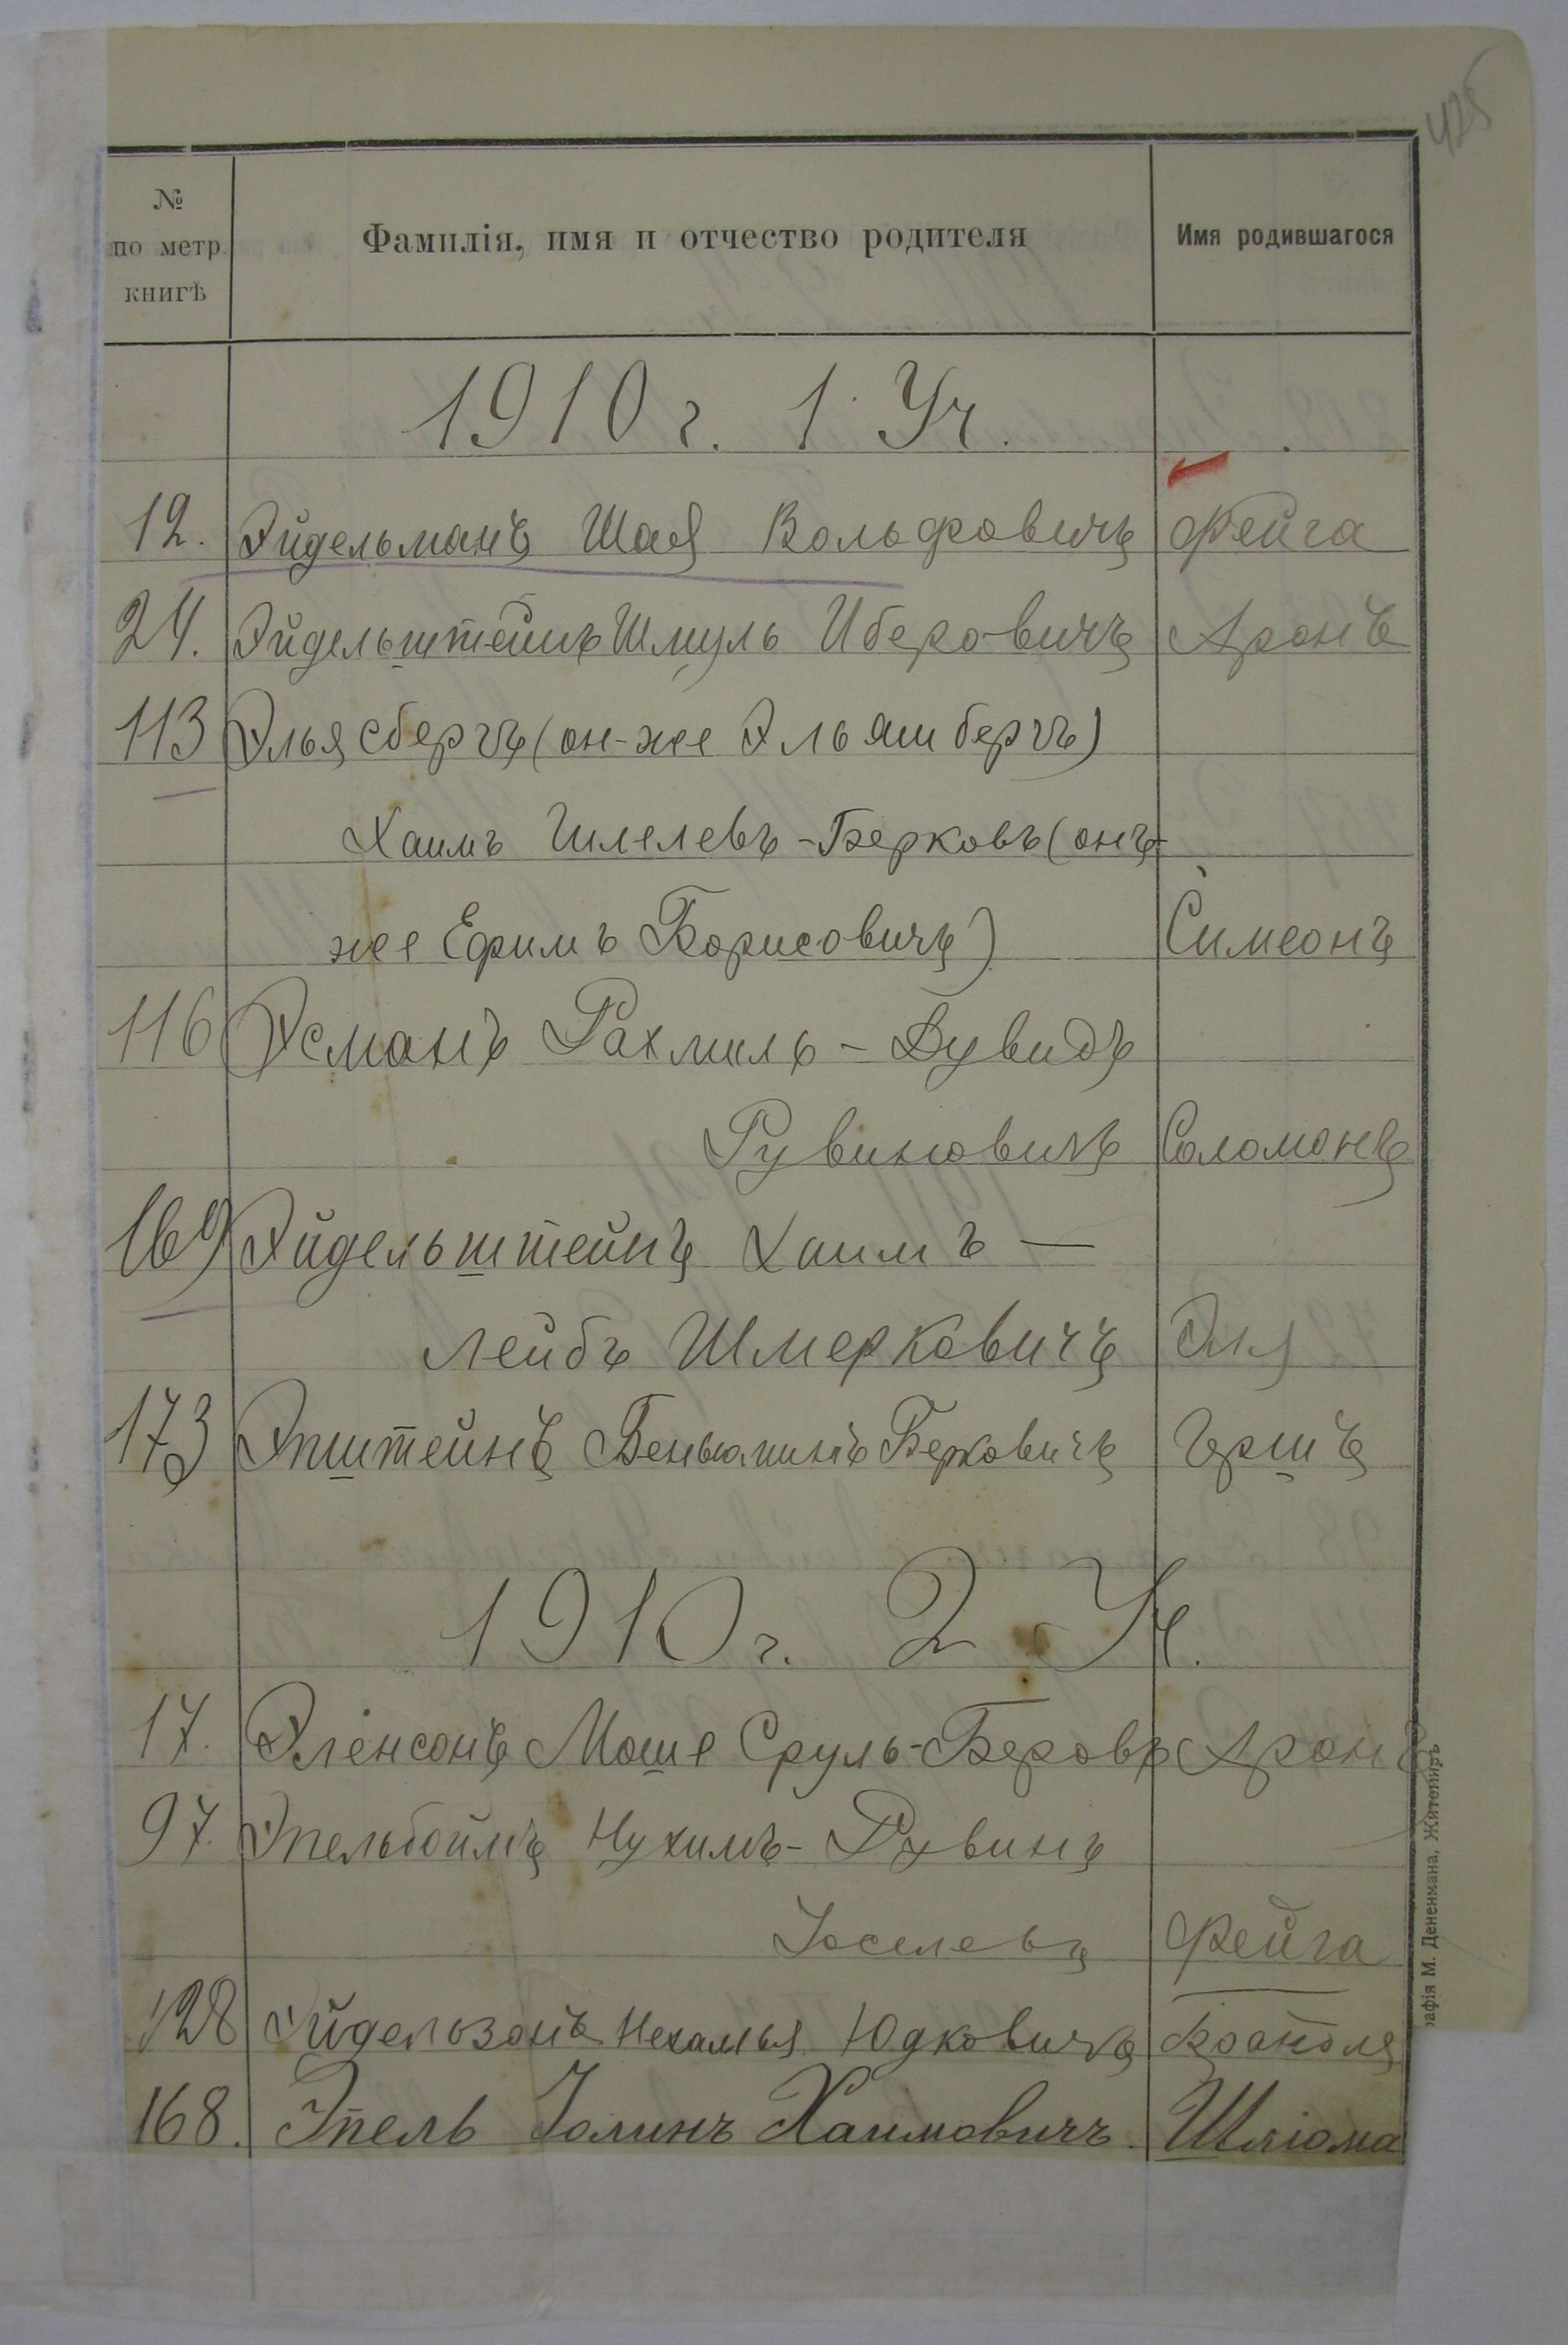 425
№ по метр. книгѣ Фамилія, имя и отчество родителя Имя родившагося
1910 г. 1 Уч.
12. Эйдельманъ Шая Вольфовичъ Фейга
24. Эйдельштейнъ Шмуль Иберовичъ Аронъ
113 Эльясбергъ (он-же Эльяшбергъ)
Хаимъ Шлелевъ-Берковъ (онъ-
же Ефимъ Борисовичъ) Симеонъ
116 Эсманъ Рахмиль-Дувидъ
Рувиновичъ Соломонъ
169 Эйдельштейнъ Хаимъ —
Лейбъ Шмерковичъ Эля
173 Эпштейнъ Беньяминъ Берковичъ Гершъ
1910 г. 2 Уч.
17. Эленсонъ Моше Сруль-Беровъ Аронъ
97. Эпельбоймъ Нухимъ-Рувинъ
Іоселевъ Фейга
128 Эйдельзонъ Нехамья Юдковичъ
168. Эпель Іолинъ Хаимовичъ. Шліома
рафія М. Дененмана, Житомиръ